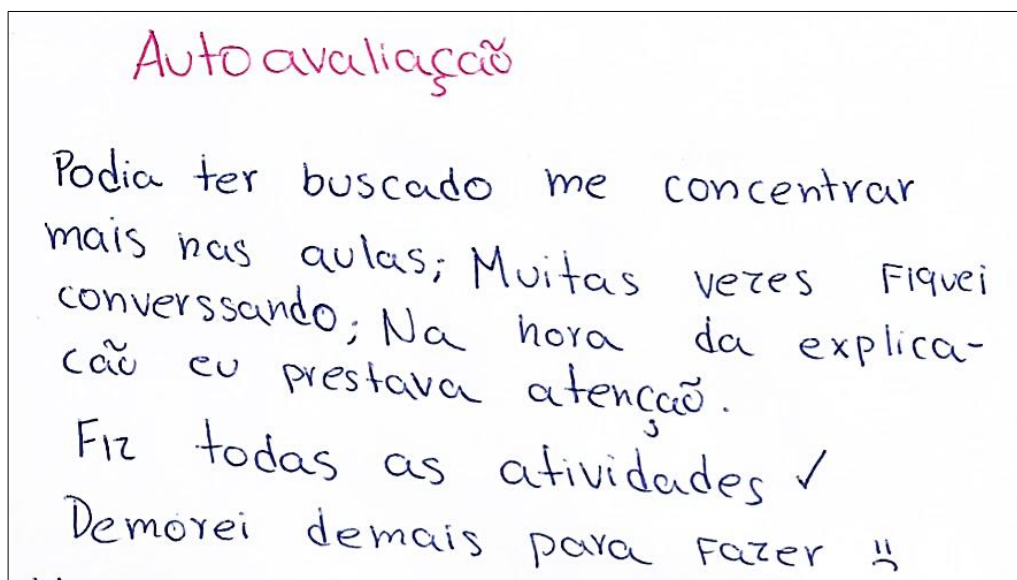 Autoavaliação
Podia ter buscado me concentrar
mais nas aulas; Muitas vezes Fiquei
converssando; Na hora da explica-
cão eu prestava atenção.
Fiz todas as atividades ✓
Demorei demais para Fazer